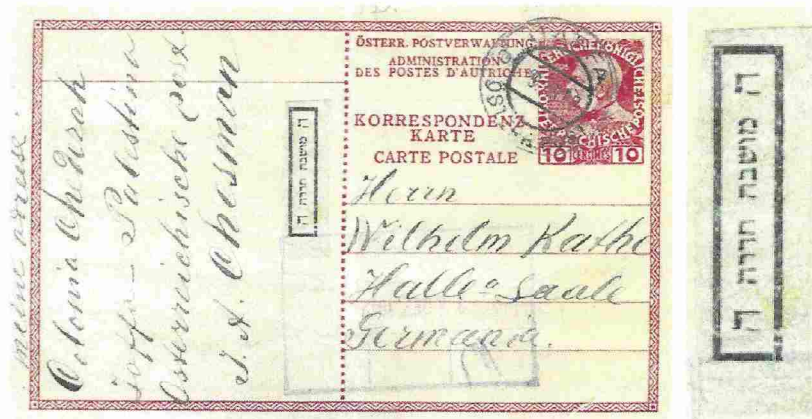 meine adresse:
Colonia Chederah
Joffa - Palestina
Österreichische post
J. A. Chosman
מושבת חדרה
ÖSTERR. POSTVERWALTUNG
ADMINISTRATION
DES POSTES D'AUTRICHE
KORRESPONDENZ-
KARTE
CARTE POSTALE
10 CENTIMES 10
Herrn
Wilhelm Kathe
Halle a Saale
Germania.
מושבת חדרה